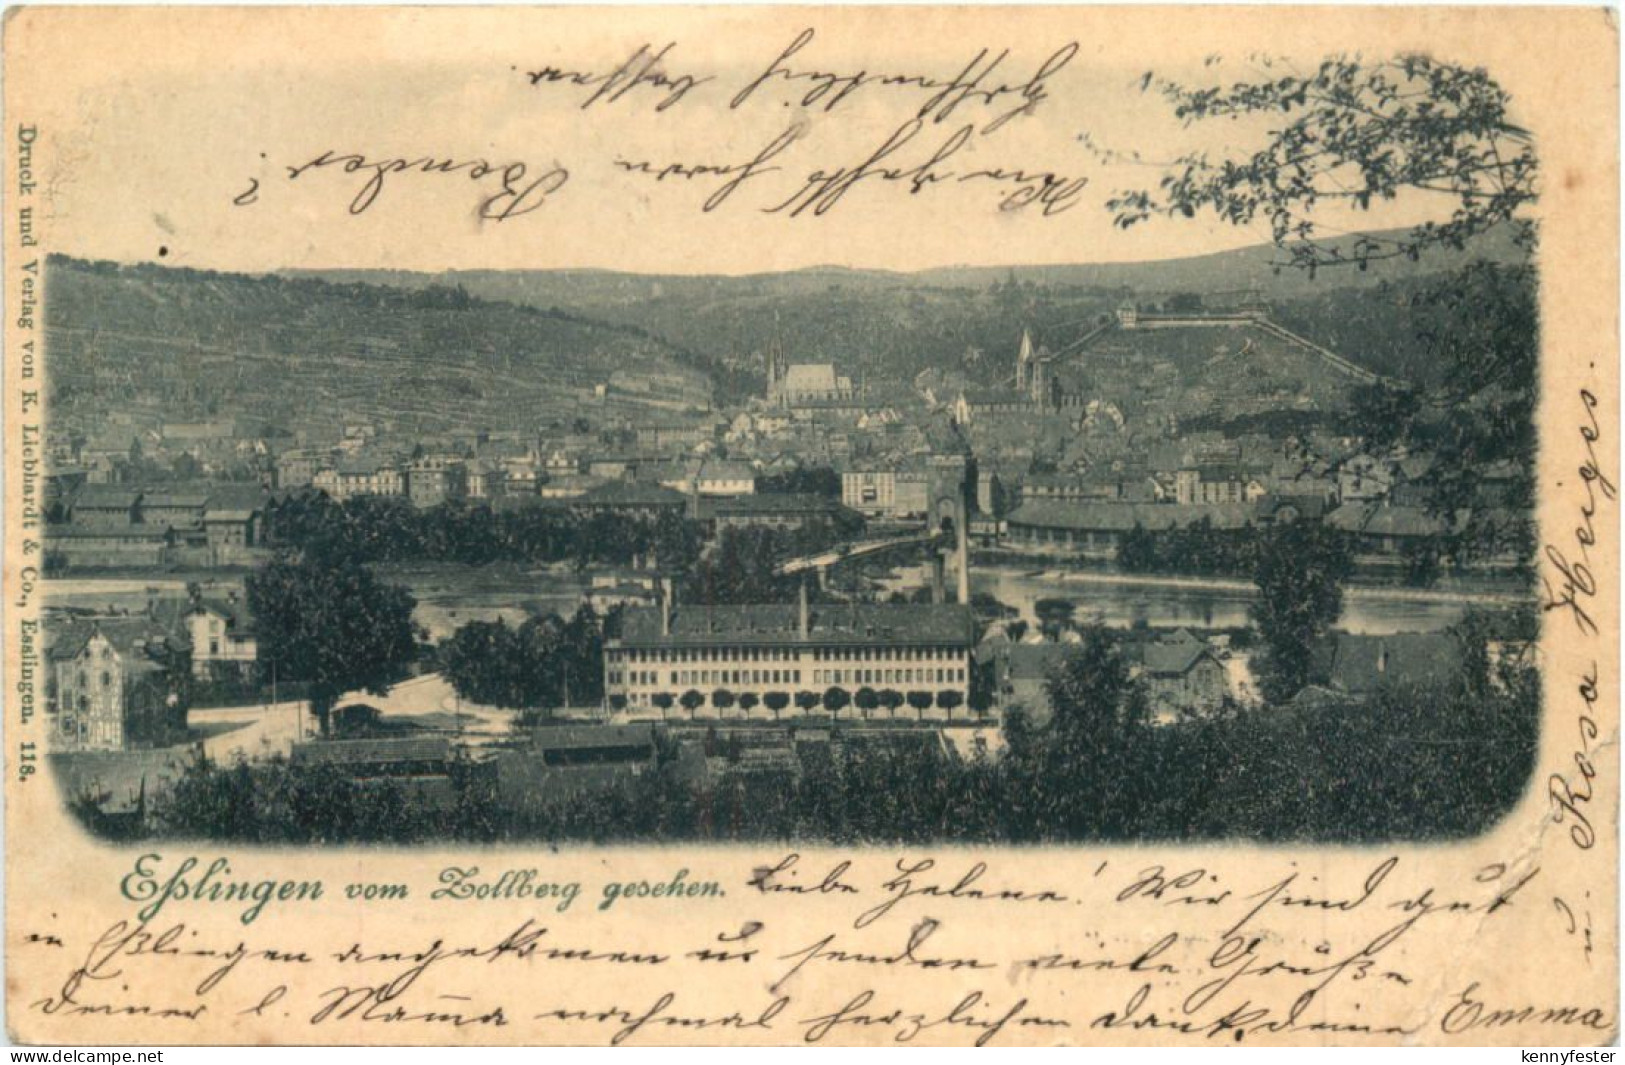 Eßlingen vom Zollberg gesehen. Liebe Helene! Wir sind gut
in Eßlingen angekomen u. senden viele Grüße
Deiner l. Mama nochmal herzlichen Dank, deine Emma
u. Rosa Heiges.
Wie gehts Herrn Bender?
Hoffentlich besser.
Druck und Verlag von K. Liebhardt & Co., Esslingen. 118.
www.delcampe.net
kennyfester